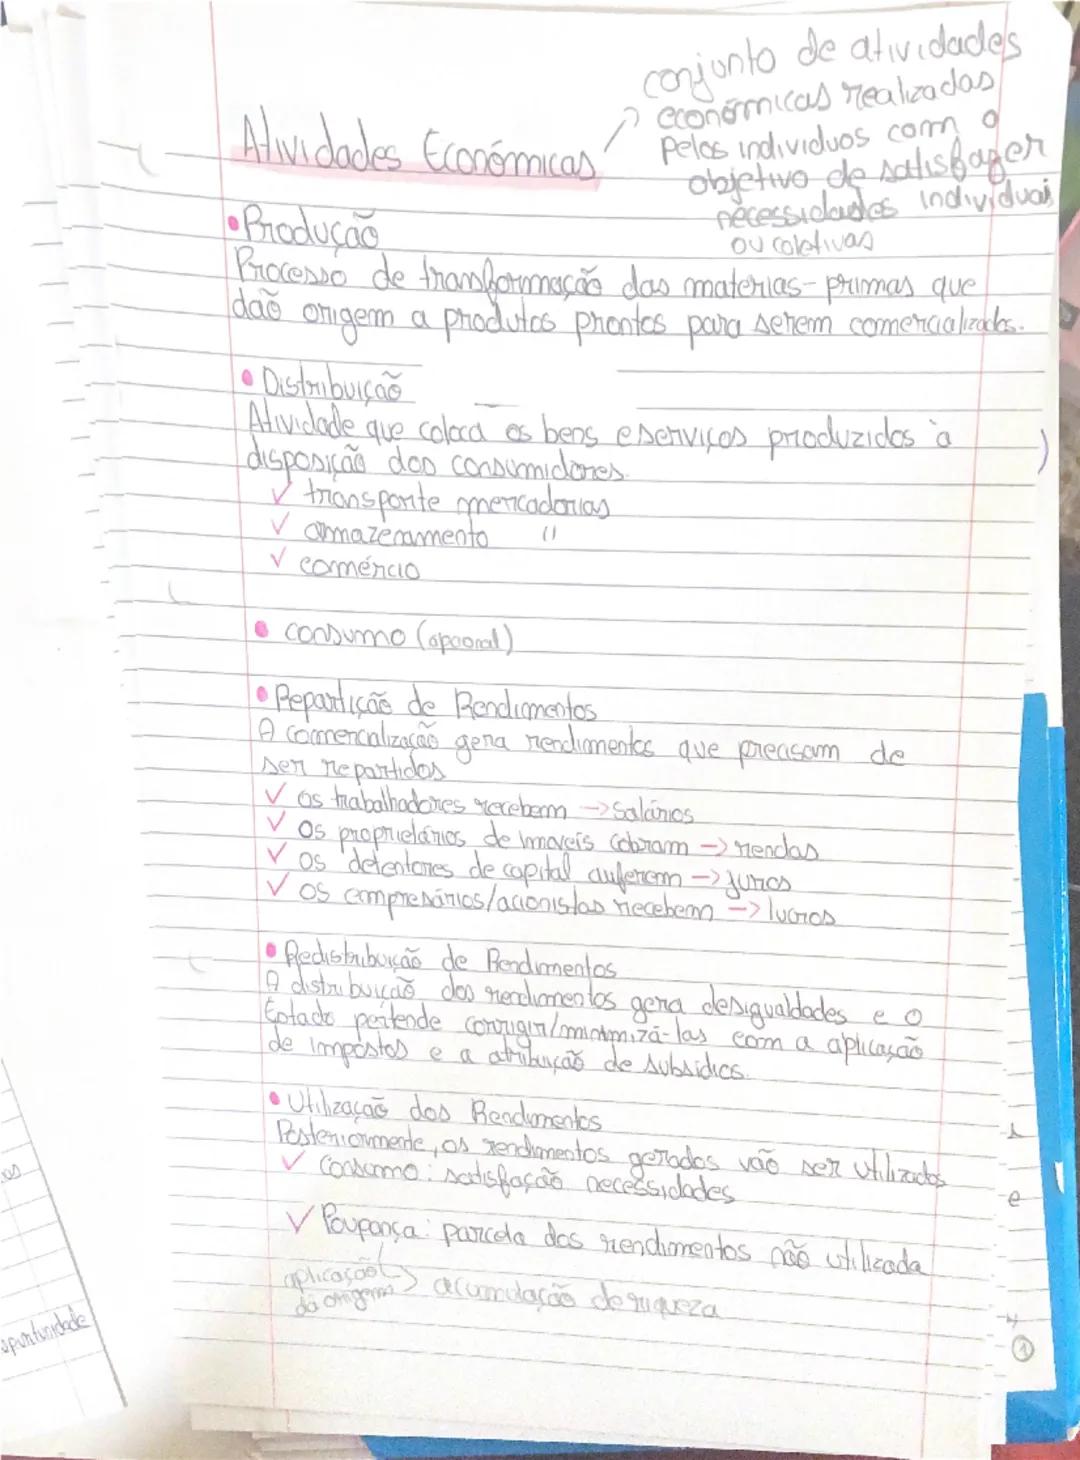 conjunto de atividades
económicas realizadas
pelos individuos com o
objetivo de satisfazer
necessidades individuais
ou coletivas
Atividades Económicas
• Produção
Processo de transformação das materias-primas que
dão origem a produtos prontos para serem comercializados.
• Distribuição
Atividade que coloca os bens e serviços produzidos à
disposição dos consumidores.
✓ transporte mercadorias
✓ armazenamento "
✓ comércio
• Consumo (opcional)
• Repartição de Rendimentos
A comercialização gera rendimentos que precisam de
ser repartidos
✓ os trabalhadores recebem -> salários
✓ Os proprietários de imoveis cobram -> rendas
✓ Os detentores de capital auferem -> juros
✓ Os empresários/acionistas recebem -> lucros
• Redistribuição de Rendimentos
A distribuição dos rendimentos gera desigualdades e o
Estado pertende corrigir/minimizá-las com a aplicação
de impostos e a atribuição de subsidios.
• Utilização dos Rendimentos
Posteriormente, os rendimentos gerados vão ser utilizados
✓ Consumo: satisfação necessidades
✓ Poupança: parcela dos rendimentos não utilizada
aplicação -> acumulação de riqueza
dá origem
1
oportunidade